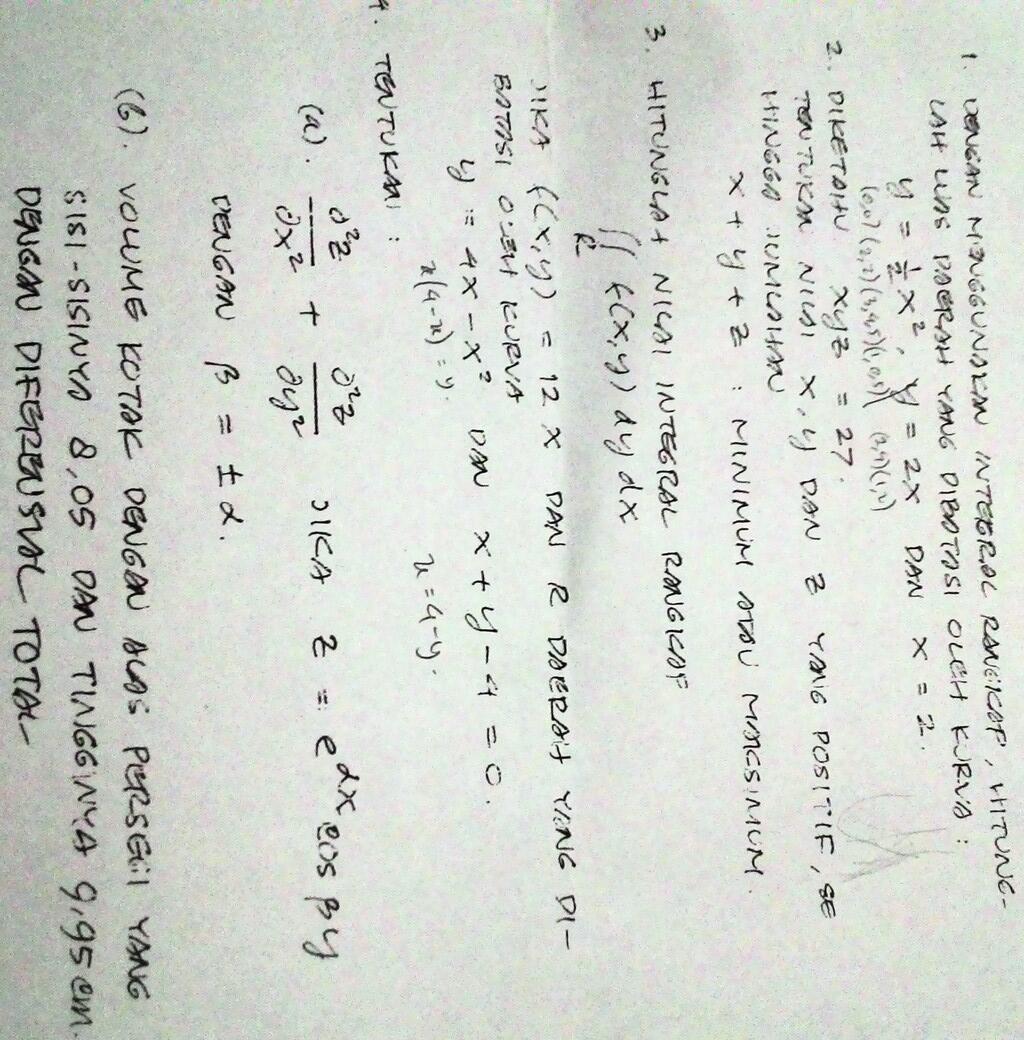 1. DENGAN MENGGUNAKAN INTEGRAL RANGKAP, HITUNG-
LAH LUAS DAERAH YANG DIBATASI OLEH KURVA :
y = ½x², y = 2x DAN x = 2.
2. DIKETAHUI xyz = 27.
TENTUKAN NILAI x, y DAN z YANG POSITIF, SE
HINGGA JUMLAHAN
x + y + z : MINIMUM ATAU MAKSIMUM.
3. HITUNGLAH NILAI INTEGRAL RANGKAP
∬ f(x,y) dy dx
R
JIKA f(x,y) = 12x DAN R DAERAH YANG DI-
BATASI OLEH KURVA
y = 4x - x² DAN x + y - 4 = 0.
x(4-x) = y. x = 4-y.
4. TENTUKAN :
(a). ∂²z/∂x² + ∂²z/∂y² JIKA z = e^αx cos βy
DENGAN β = ± α.
(b). VOLUME KOTAK DENGAN ALAS PERSEGI YANG
SISI-SISINYA 8,05 DAN TINGGINYA 9,95 cm.
DENGAN DIFERENSIAL TOTAL